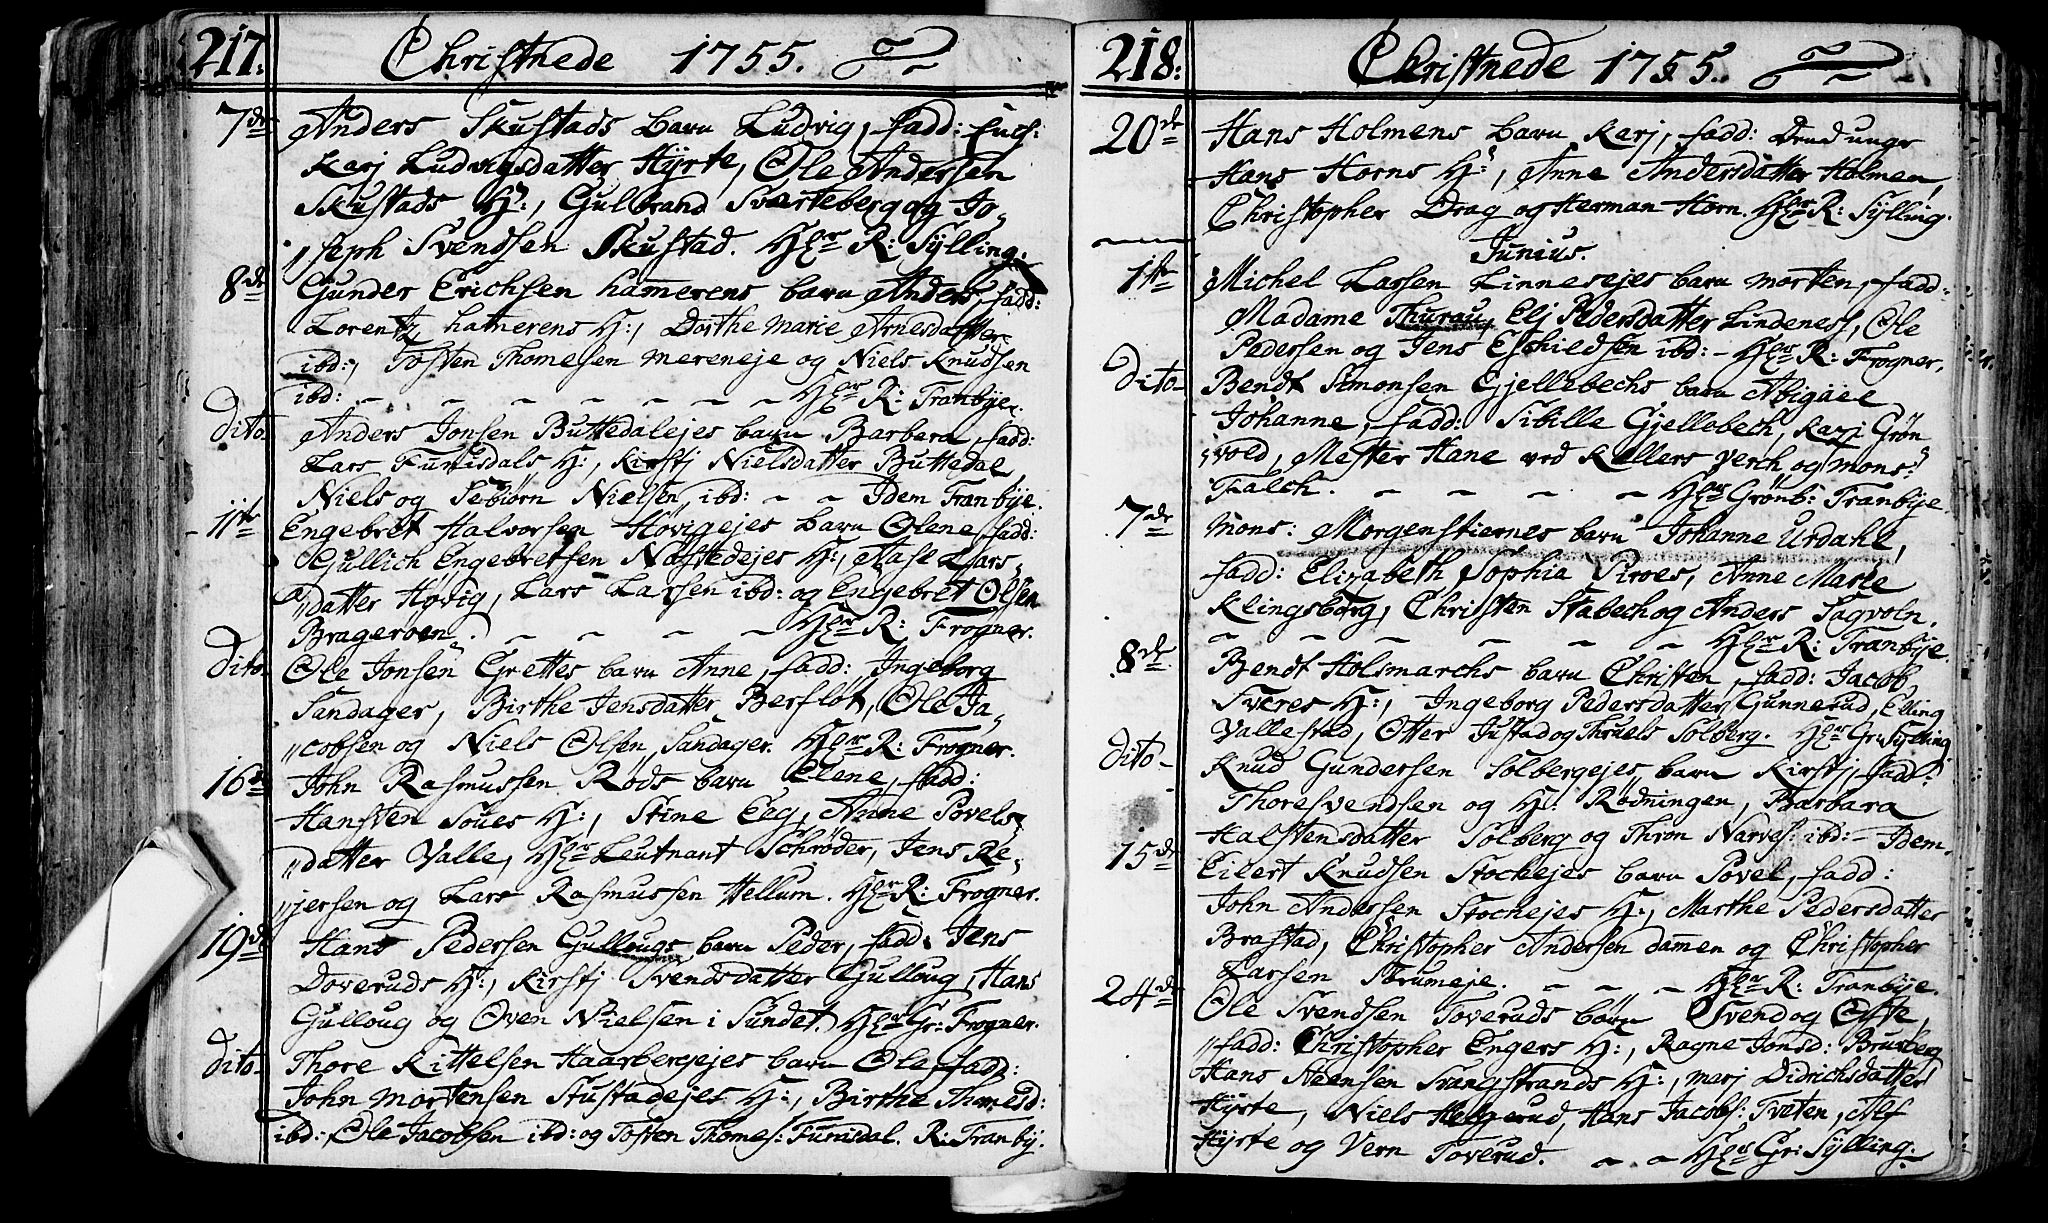 217. Christnede 1755.
7de Anders Skustads barn Ludvig, fadd:
Karj Ludvigsdatter Hyrte, Ole Andersen
Skustads H:, Gulbrand Sverteberg og Jo-
„seph Svendsen Skustad. Hr R: Sylling.
8de Gunder Erichsen hamerens barn Anders, fadd:
Lorentz hamerens H:, Dorthe Marie Arnesdatter
ibd:, Tosten Thomesen Mereneje og Niels Knudsen
ibd: ~ ~ ~ ~ ~ ~ ~ Hr R: Tranbye.
Dito- Anders Jonsen Buttedalejes barn Barbara, fadd:
Lars Funisdals H:, Kirstj Nielsdatter Buttedal,
Niels og Sebiørn Nielsen, ibd: ~ ~ Idem Tranbye.
11te Engebret Halvorsen Høvigejes barn Olene, fadd:
Gullich Engebretsen Nøstedejes H:, Aase Lars-
„datter Høvig, Lars Larsen ibd: og Engebret Olsen
Brageroen. ~ ~ ~ ~ Hr R: Frogner.
Dito- Ole Jonsen Grettes barn Anne, fadd: Ingeborg
Sandager, Birthe Jensdatter Berfløt, Ole Ja-
„cobsen og Niels Olsen, Sandager. Hr R: Frogner.
16de John Rasmussen Røds barn Elene, fadd:
Hansten Soues H:, Stine Eeg, Anne Povels-
„datter Valle, Hr Leutnant Schrøder, Jens Re-
„jersen og Lars Rasmussen Hellum. Hr R: Frogner.
19de Hans Pedersen Gullougs barn Peder, fadd: Jens
Doveruds H:, Kirstj Svendsdatter Gulloug, Hans
Gulloug og Oven Nielsen i Sundet. Hr Gr: Frogner.
Dito- Thore Kittelsen Haarbergejes barn Ole, fadd:
John Mortensen Stustadejes H:, Birthe Thomesd:
ibd:, Ole Jacobsen ibd: og Tosten Thomes: Funisdal. R: Tranbÿ.
218: Christnede 1755.
20de Hans Holmens barn Karj, fadd: Dend unge
Hans Horns H:, Anne Andersdatter Holmen,
Christopher Drag og Herman Horn. Hr R: Sylling.
Junius.
1ste Michel Larsen Linnesejes barn Morten, fadd:
Madame Thurau, Elj Pedersdatter Lindenes, Ole
Pedersen og Jens Eschildsen ibd: - Hr R: Frogner.
Dito- Bendt Simonsen Gjellebechs barn Abigael
Johanne, fadd: Sibille Gjellebech, Kari Grøn
„vold, Mester Hane ved Kallers verch og Mons:
Falch. ~ ~ ~ ~ Hr Grønb: Tranbye.
7de Mons: Morgenstiernes barn Johanne Urdahl,
fadd: Elizabeth Sophia Piroes, Anne Marie
Klingsborg, Christen Stabech og Anders Sagvoln.
~ ~ ~ ~ ~ ~ Hr R: Tranbye.
8de Bendt Holsmarchs barn Christen, fadd: Jacob
Sveres H:, Ingeborg Pedersdatter Gunnerud, Elling
Vallestad, Otter Justad og Thruels Solberg. Hr Gr: Sylling
Dito- Knud Gundersen Solbergejes barn Kirstj, fadd:
Thore Svendsen og H: Rødningen, Barbara
Halstensdatter Solberg og Thron Narves: ibd: - Idem.
15de Eilert Knudsen Stochejes barn Povel, fadd:
John Andersen Stochejes H:, Marthe Pedersdatter
Brastad, Christopher Andersen dammen og Christopher
Larsen Strumeje. ~ ~ ~ Hr R: Tranbye.
24de Ole Svendsen Toveruds børn Svend og Offe,
„fadd: Christopher Engers H:, Ragne Jonsd: Brusberg
Hans Steensen Trangstrands H:, Marj Didrichsdatter
Hyrte, Niels Helgerud, Hans Jacobs: Tveten, Alf
Hyrte og Vern Toverud. ~ ~ Hr Gr: Sylling.